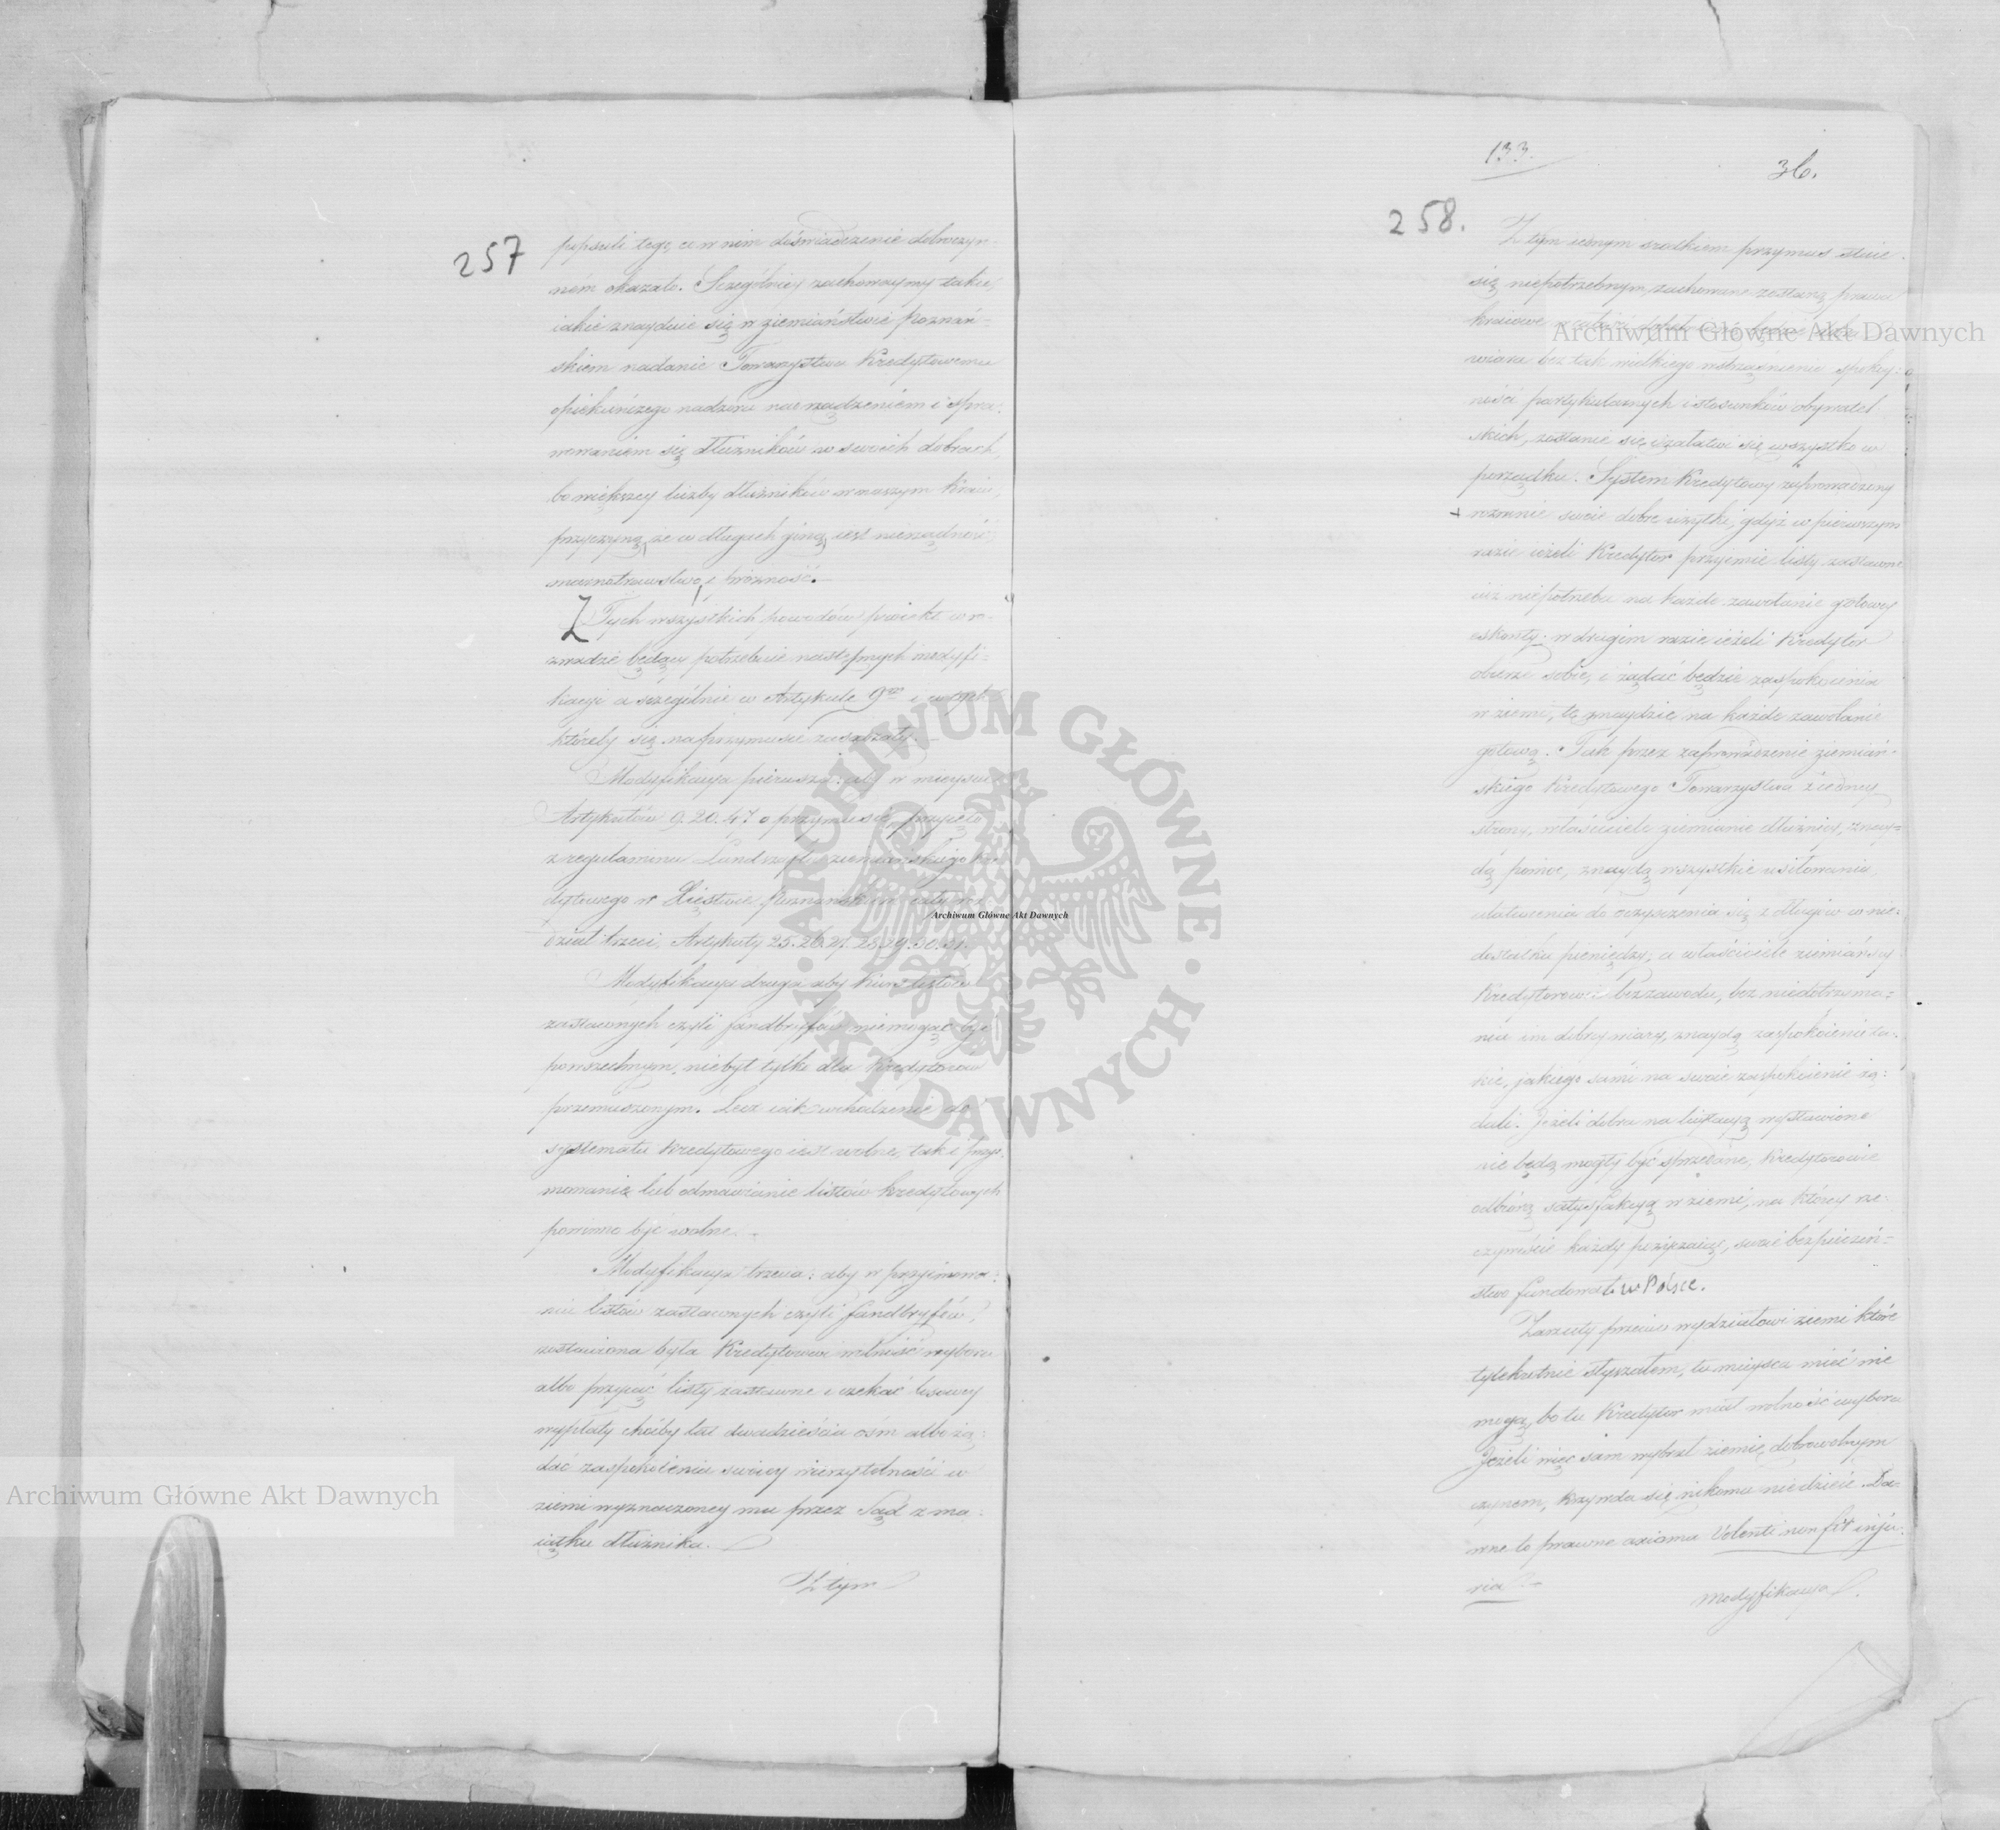 257
popsuli tego, co w nim doświadczenie dobroczyn-
nem okazało. Szczególniey zachowaymy takie
iakie znayduie się w ziemiaństwie poznań-
skiem nadanie Towarzystwu Kredytowemu
opiekuńczego nadzoru nad rządzeniem i spra-
wowaniem się dłużników w swoich dobrach,
bo większey liczby dłużników w naszym Kraiu,
przyczyną, że w długach giną, iest nierządność
marnotrawstwo, i próżność. —
Z Tych wszystkich powodów proiekt w o-
brazdzie będący potrzebuie następnych modyfi-
kacyi a szczególnie w Artykule 9ym i w tych
któreby się na przymusie zasadzały. —
Modyfikacya pierwsza: aby w mieysce
Artykułów 9. 20. 47 o przymusie, przyięto
z regulaminu Landszaft ziemiańskiego Kre-
dytowego w Xięstwie Poznańskim cały
dział trzeci, Artykuły 25. 26. 27. 28. 29. 30. 31.
Modyfikacya druga aby kurs listów
zastawnych czyli fandbryfów niemogąc być
powszechnym, niebył tylko dla Kredytorów
przemuszonym. Lecz iak wchodzenie do
systematu Kredytowego iest wolne, tak i przy-
mowanie lub odmawianie listów kredytowych
powinno być wolne. —
Modyfikacya trzecia: aby w przyimowa-
niu listów zastawnych czyli fandbryfów,
zostawiona była Kredytorowi wolność wyboru
albo przyiąć listy zastawne i czekać losowey
wypłaty choćby lat dwadzieścia ośm albo żą-
dać zaspokoienia swoiey wierzytelności w
ziemi wyznaczoney mu przez Sąd z ma-
iątku dłużnika.
Z tym
133.
36.
258.
Z tym iednym środkiem przymus stuie
się niepotrzebnym, zachowane zostaną prawa
kraiowe
wiara bez tak wielkiego wstrząśnienia spokoy-
ności partykularnych i stosunków obywatel-
skich, zostanie się i załatwi się wszystko w
porządku. System Kredytowy zaprowadzony
rozwinie swoie dobre użytki, gdyż w pierwszym
razie ieżeli Kredytor przyimie listy zastawne
iuż niepotrzeba na każde zawołanie gotowey
eskonty: w drugim razie ieżeli Kredytor
obierze sobie, i żądać będzie zaspokoienia
w ziemi, tę znaydzie na każde zawołanie
gotową. Tak przez zaprowadzenie ziemiań-
skiego Kredytowego Towarzystwa z iedney
strony, właściciele ziemianie dłużnicy, znay-
dą pomoc, znaydą wszystkie usiłowania,
ułatwienia do oczyszczenia się z długów w nie-
dostatku pieniędzy, a właściciele ziemiańscy
Kredytorowie bez zawodu, bez niedotrzyma-
nia im dobrey wiary, znaydą zaspokoienie ta-
kie, jakiego sami na swoie zaspokoienie żą-
dali. Jeżeli dobra na licytacyą wystawione
nie będą mogły być sprzedane, Kredytorowie
odbiorą satysfakcyą w ziemi, na którey rze-
czywiście każdy pożyczaiąc, swoie bezpieczeń-
stwo fundował w Polsce.
Zarzuty przeciw wydziałowi ziemi które
tylekrotnie słyszałem, tu mieysca mieć nie
mogą, bo tu Kredytor miał wolność wyboru
Jeżeli więc sam wybrał ziemię dobrowolnym
czynem, krzywda się nikomu niedzieie. Da-
wne to prawne axioma Volenti non fit inju-
ria —
Modyfikacya
Archiwum Główne Akt Dawnych
Archiwum Główne Akt Dawnych
Archiwum Główne Akt Dawnych
ARCHIWUM GŁÓWNE · AKT DAWNYCH ·